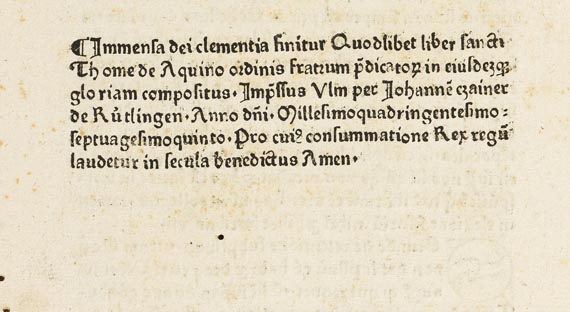 ¶Immensa dei clementia finitur Quodlibet liber sancti
Thome de Aquino ordinis fratrum p̄dicatoꝝ in eiusdemqꝫ
gloriam compositus· Imp̄ssus Vlm per Johannē czainer
de Rútlingen· Anno dn̄i· Millesimoquadringentesimo⸗
septuagesimoquinto· Pro cuiꝰ consummatione Rex regū
laudetur in secula benedictus Amen·